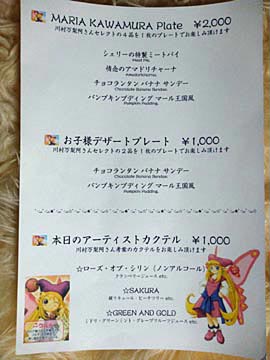 MARIA KAWAMURA Plate ¥2,000
川村万梨阿さんセレクトの4品を1枚のプレートでお楽しみ頂けます
シェリーの特製ミートパイ
Meat Pie
情恋のアマドリチャーナ
チョコランタン バナナ サンデー
Chocolate Banana Sundae
パンプキンプディング マール王国風
Pumpkin Pudding
お子様デザートプレート ¥1,000
川村万梨阿さんセレクトの2品を1枚のプレートでお楽しみ頂けます
チョコランタン バナナ サンデー
Chocolate Banana Sundae
パンプキンプディング マール王国風
Pumpkin Pudding
本日のアーティストカクテル ¥1,000
川村万梨阿さん考案のカクテルをお楽しみ頂けます
☆ローズ・オブ・シリン (ノンアルコール)
クランベリージュース etc.
☆SAKURA
桜リキュール・ピーチツリー etc.
☆GREEN AND GOLD
ミドリ・グリーンミント・グレープフルーツジュース etc.